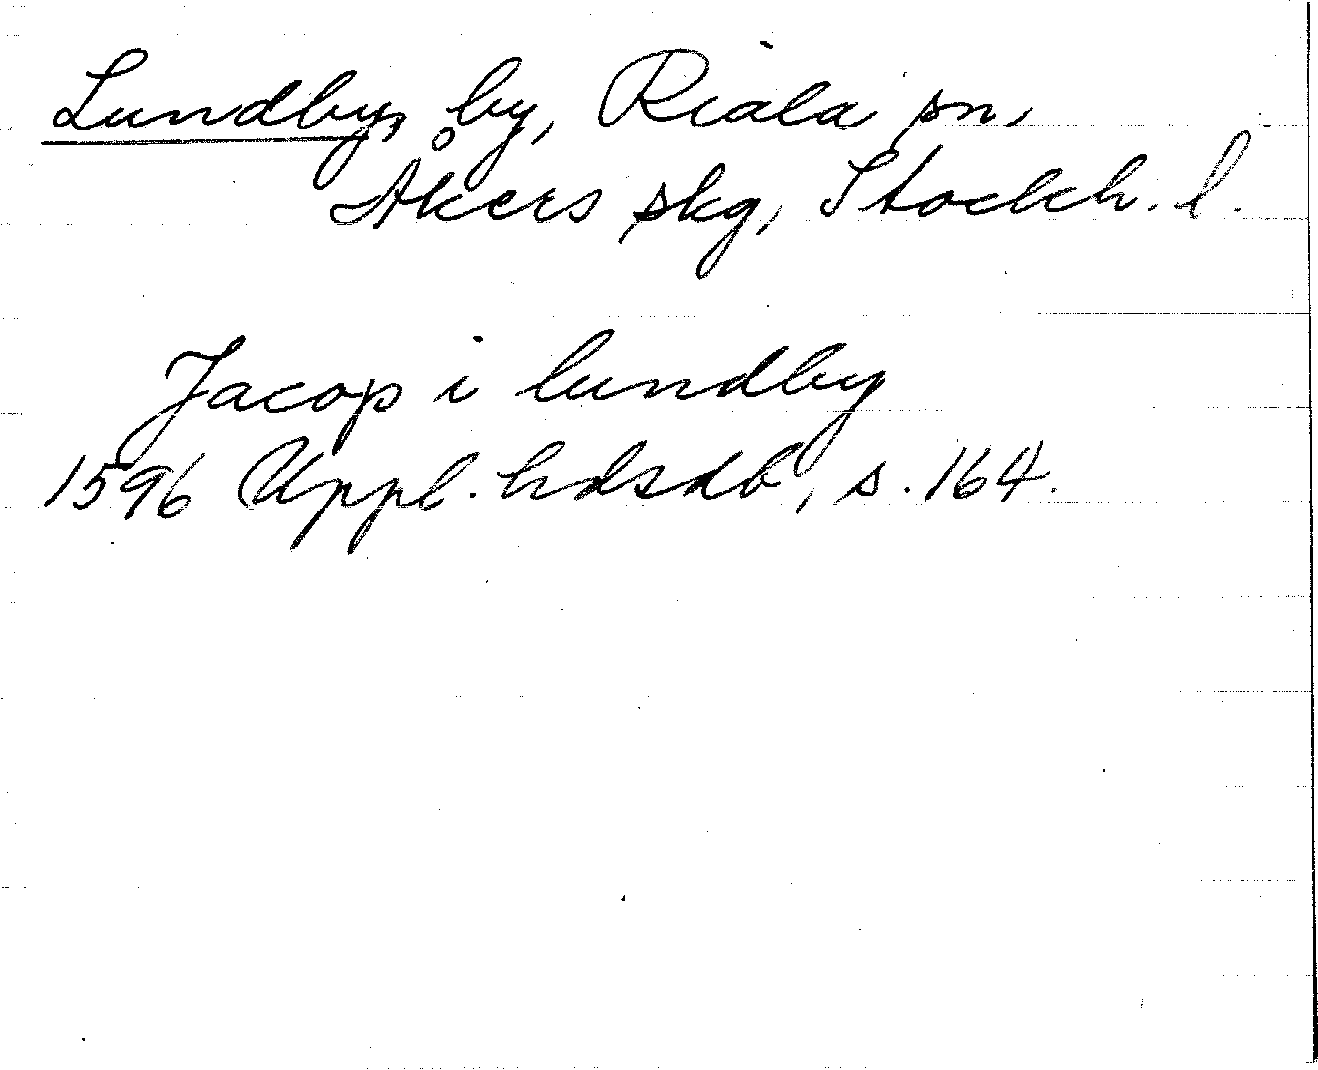 Lundby, by, Riala sn,
Åkers skg, Stockh. l.
Jacop i lundby
1596 Uppl. hdsdb, s. 164.